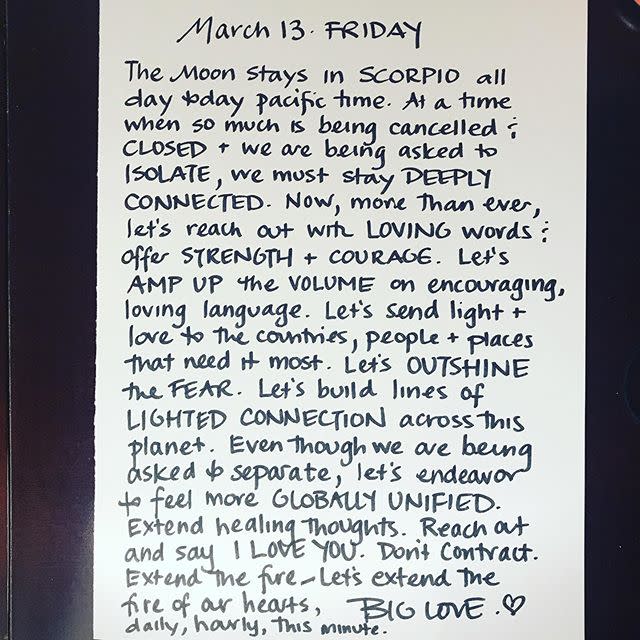 March 13. FRIDAY
The Moon stays in SCORPIO all
day today pacific time. At a time
when so much is being cancelled &
CLOSED + we are being asked to
ISOLATE, we must stay DEEPLY
CONNECTED. Now, more than ever,
let's reach out with LOVING words &
offer STRENGTH + COURAGE. Let's
AMP UP the VOLUME on encouraging,
loving language. Let's send light +
love to the countries, people + places
that need it most. Let's OUTSHINE
the FEAR. Let's build lines of
LIGHTED CONNECTION across this
planet. Even though we are being
asked to separate, let's endeavor
to feel more GLOBALLY UNIFIED.
Extend healing thoughts. Reach out
and say I LOVE YOU. Don't contract.
Extend the fire - Let's extend the
fire of our hearts, BIG LOVE. ♡
daily, hourly, this minute.